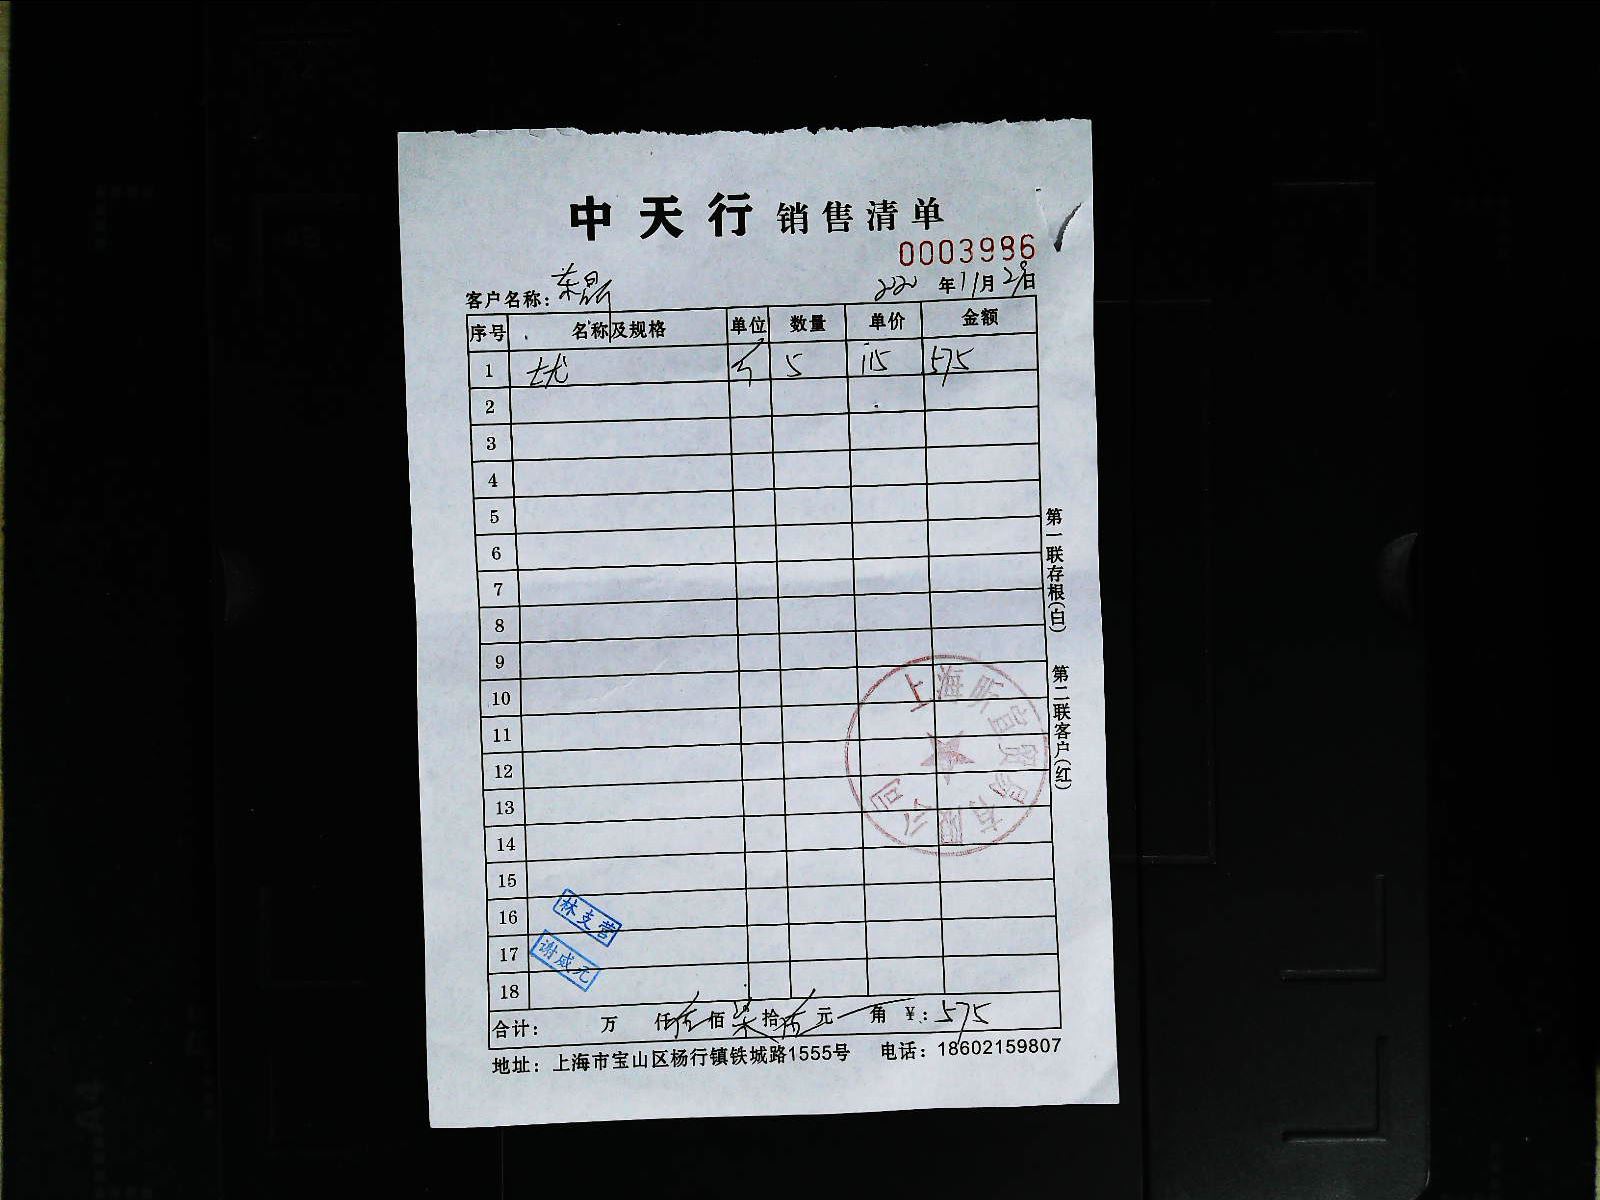 中天行 销售清单
0003986
客户名称: 荣晶
2020 年 11 月 29 日
序号 名称及规格 单位 数量 单价 金额
1 个 5 115 575
2
3
4
5
6
7
8
9
10
11
12
13
14
15
16
17
18
上海昕宫贸易有限公司
林支营
谢成元
合计: 万 仟 伍 佰 柒 拾 伍 元 角 ¥: 575
地址: 上海市宝山区杨行镇铁城路1555号 电话: 18602159807
第一联存根(白) 第二联客户(红)